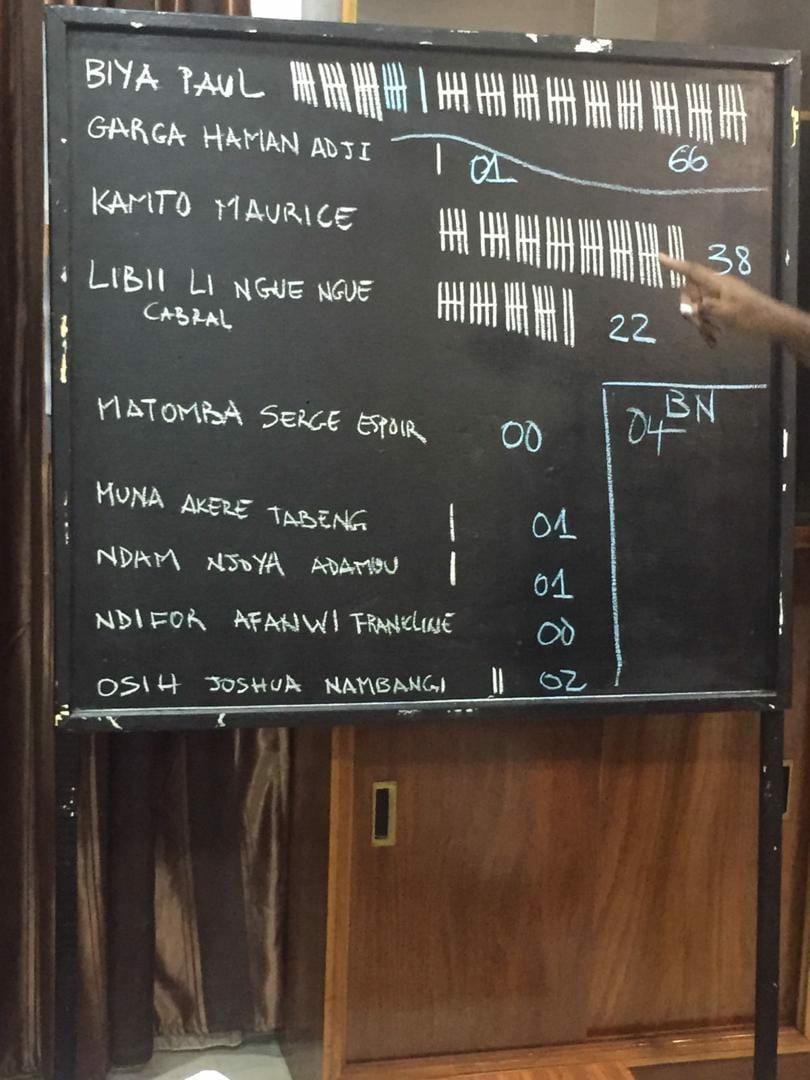 BIYA PAUL
GARGA HAMAN ADJI 01 66
KAMTO MAURICE 38
LIBII LI NGUE NGUE
CABRAL 22
MATOMBA SERGE ESPOIR 00
BN
04
MUNA AKERE TABENG 01
NDAM NJOYA ADAMOU 01
NDIFOR AFANWI FRANKLINE 00
OSIH JOSHUA NAMBANGI 02